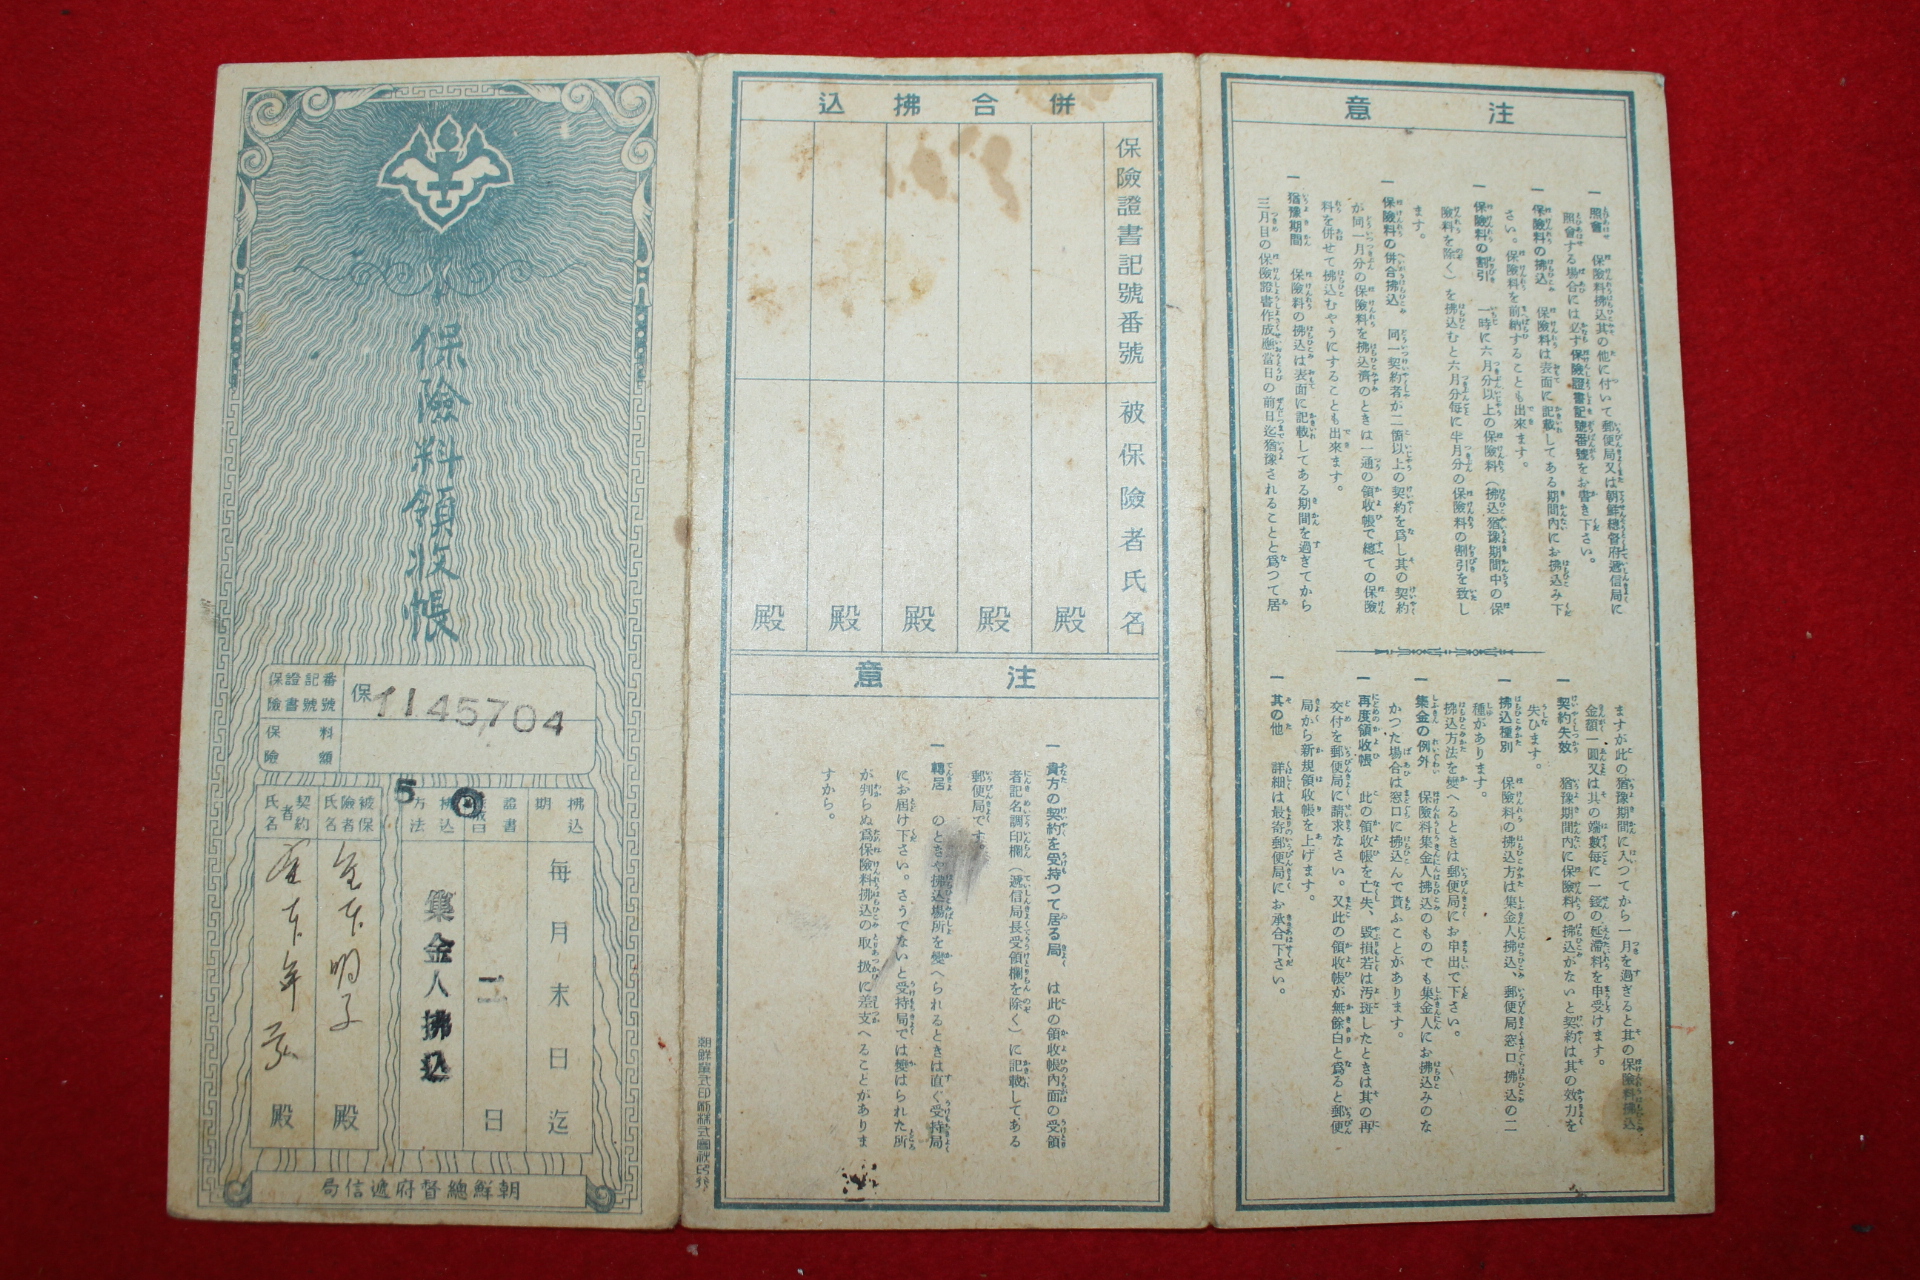 保險料領收帳
保險證書記號番號
保 1145704
保險料額
拂込期
每月末日迄
證書
二日
拂込方法
5
集金人拂込
被保險者氏名
殿
契約者氏名
殿
朝鮮總督府遞信局
併合拂込
保險證書記號番號
被保險者氏名
殿
殿
殿
殿
殿
注意
一 貴方の契約を受持つて居る局 は此の領收帳內面の受領
者記名調印欄(遞信局長受領欄を除く)に記載してある
郵便局です。
一 轉居 のときや拂込場所を變へられるときは直ぐ受持局
にお屆け下さい。さうでないと受持局では變はられた所
が判らぬ爲保險料拂込の取扱に差支へることがありま
すから。
注意
一 照會 保險料拂込其の他に付いて郵便局又は朝鮮總督府遞信局に
照會する場合には必ず保險證書記號番號をお書き下さい。
一 保險料の拂込 保險料は表面に記載してある期間內にお拂込み下
さい。保險料を前納することも出來ます。
一 保險料の割引 一時に六月分以上の保險料(拂込猶豫期間中の保
險料を除く)を拂込むと六月分每に半月分の保險料の割引を致し
ます。
一 保險料の併合拂込 同一契約者が二箇以上の契約を爲し其の契約
が同一月分の保險料を拂込濟のときは一通の領收帳で總ての保險
料を併せて拂込むやうにすることも出來ます。
一 猶豫期間 保險料の拂込は表面に記載してある期間を過ぎてから
三月目の保險證書作成應當日の前日迄猶豫されることと爲つて居
ますが此の猶豫期間に入つてから一月を過ぎると其の保險料拂込
金額一圓又は其の端數每に一錢の延滯料を申受けます。
一 契約失效 猶豫期間內に保險料の拂込がないと契約は其の效力を
失ひます。
一 拂込種別 保險料の拂込方は集金人拂込、郵便局窓口拂込の二
種があります。
拂込方法を變へるときは郵便局にお申出で下さい。
一 集金の例外 保險料集金人拂込のものでも集金人にお拂込みのな
かつた場合は窓口に拂込んで貰ふことがあります。
一 再度領收帳 此の領收帳を亡失、毀損若は汚斑したときは其の再
交付を郵便局に請求なさい。又此の領收帳が無餘白と爲ると郵便
局から新規領收帳を上げます。
一 其の他 詳細は最寄郵便局にお承合下さい。